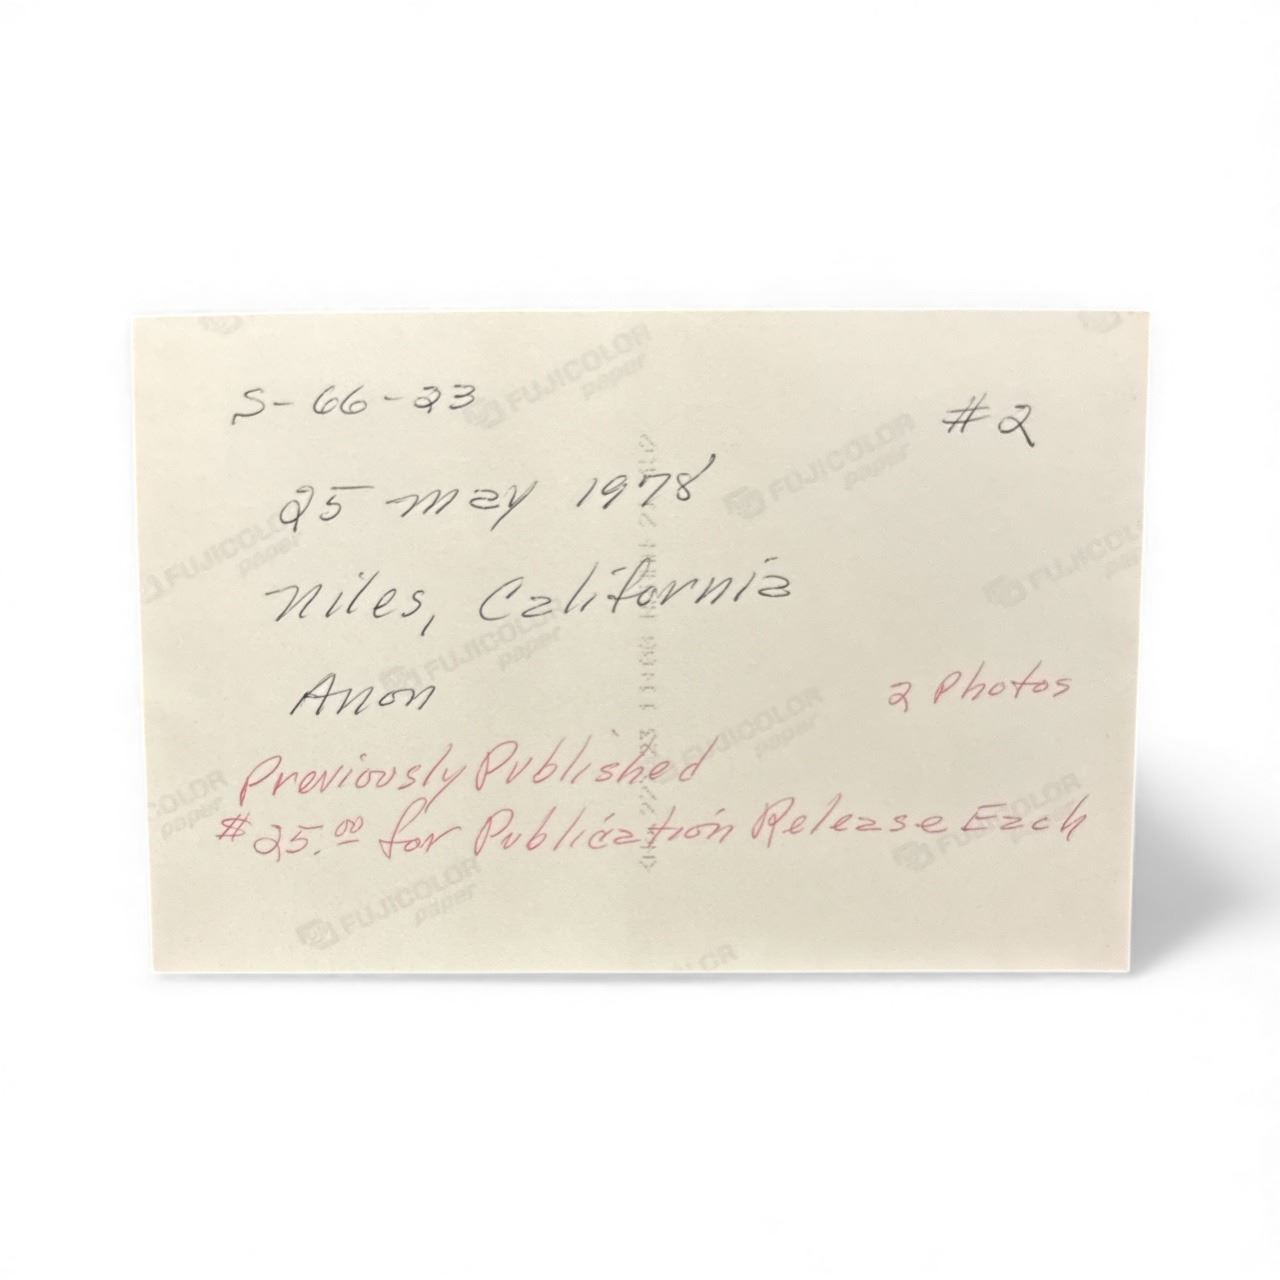 S-66-23
#2
25 May 1978
Niles, California
Anon
2 Photos
Previously Published
$25.00 for Publication Release Each
FUJICOLOR
paper
FUJICOLOR
paper
FUJICOLOR
paper
FUJICOLOR
FUJICOLOR
paper
FUJICOLOR
paper
FUJICOLOR
paper
FUJICOLOR
paper